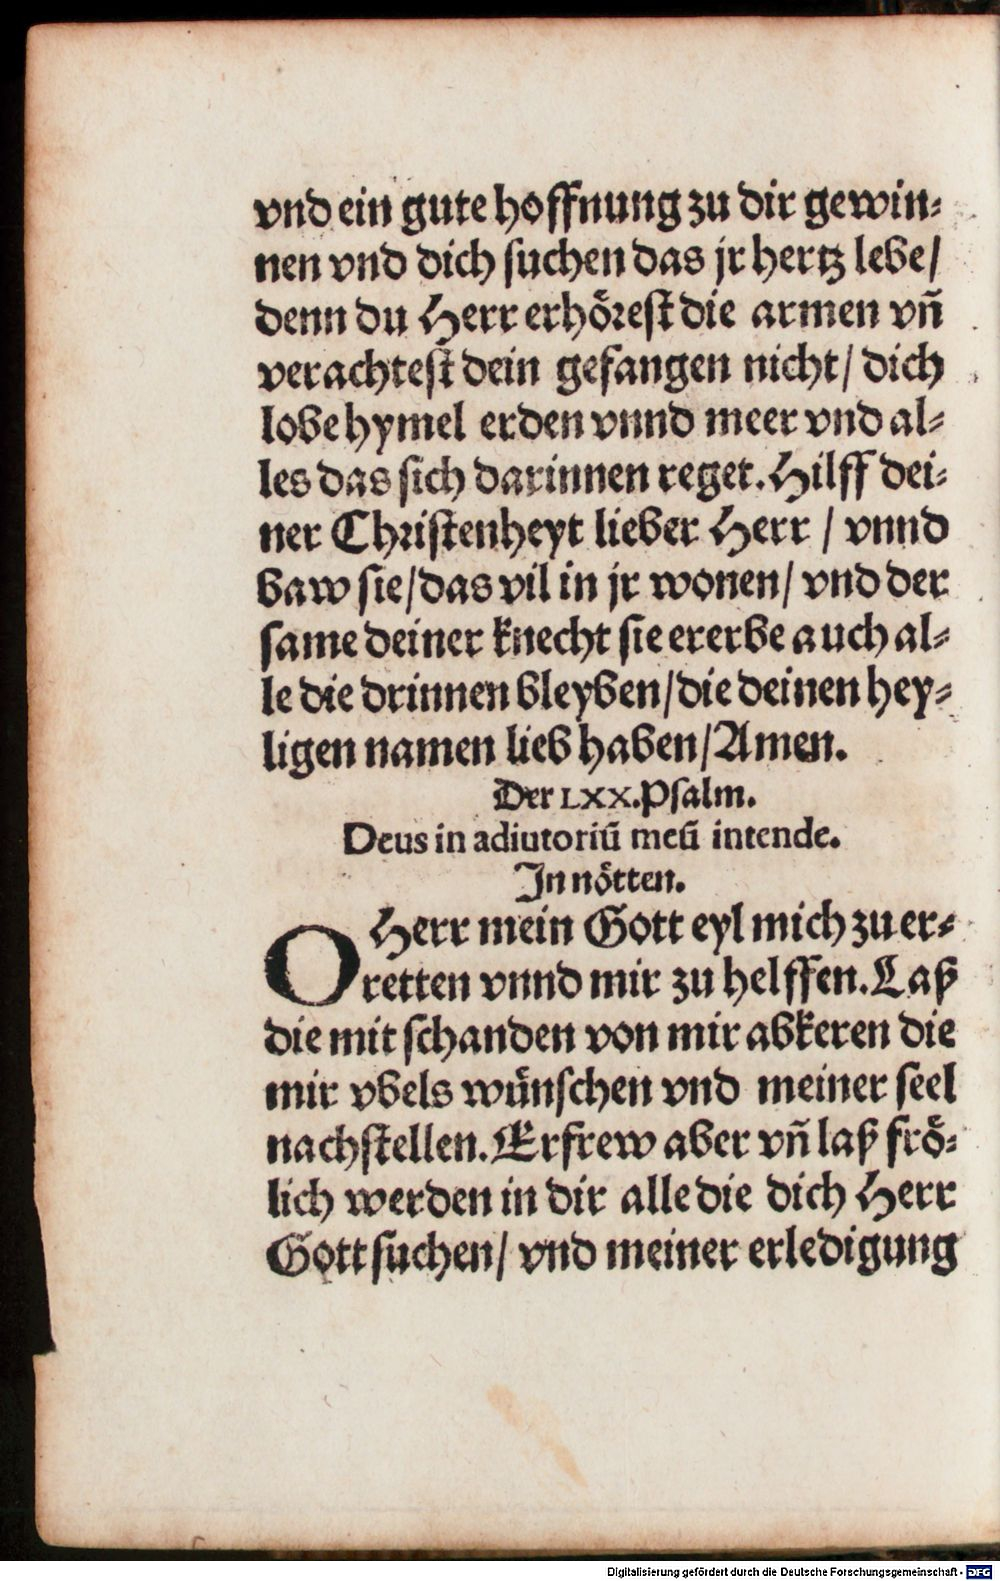 vnd ein gute hoffnung zu dir gewin⸗
nen vnd dich suchen das jr hertz lebe/
denn du Herr erhoͤrest die armen vñ
verachtest dein gefangen nicht/ dich
lobe hymel erden vnnd meer vnd al⸗
les das sich darinnen reget. Hilff dei⸗
ner Christenheyt lieber Herr / vnnd
baw sie/das vil in jr wonen/ vnd der
same deiner knecht sie ererbe auch al⸗
le die drinnen bleyben/die deinen hey⸗
ligen namen lieb haben/Amen.
Der LXX.Psalm.
Deus in adiutoriū meū intende.
In noͤtten.
O Herr mein Gott eyl mich zu er⸗
retten vnnd mir zu helffen. Laß
die mit schanden von mir abkeren die
mir vbels wuͤnschen vnd meiner seel
nachstellen. Erfrew aber vñ laß froͤ⸗
lich werden in dir alle die dich Herr
Gott suchen/ vnd meiner erledigung
Digitalisierung gefördert durch die Deutsche Forschungsgemeinschaft - DFG